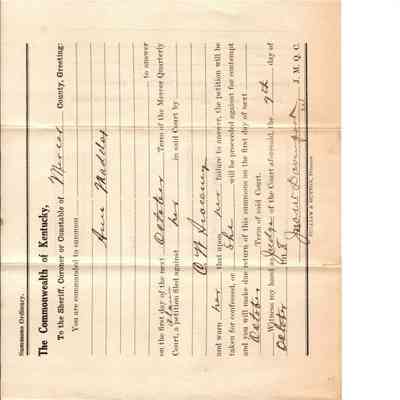 Summons Ordinary.
The Commonwealth of Kentucky,
To the Sheriff, Coroner or Constable of Mercer County, Greeting:
You are commanded to summon
Ann Maddox
to answer
on the first day of the next October Term of the Mercer Quarterly
Court, a petition filed against her in said Court by
and warn her that upon her failure to answer, the petition will be
taken for confessed, or She will be proceeded against for contempt
and you will make due return of this summons on the first day of next
October Term of said Court.
Witness my hand as Judge of the Court aforesaid, the 9th day of
October
J. M. Q. C.